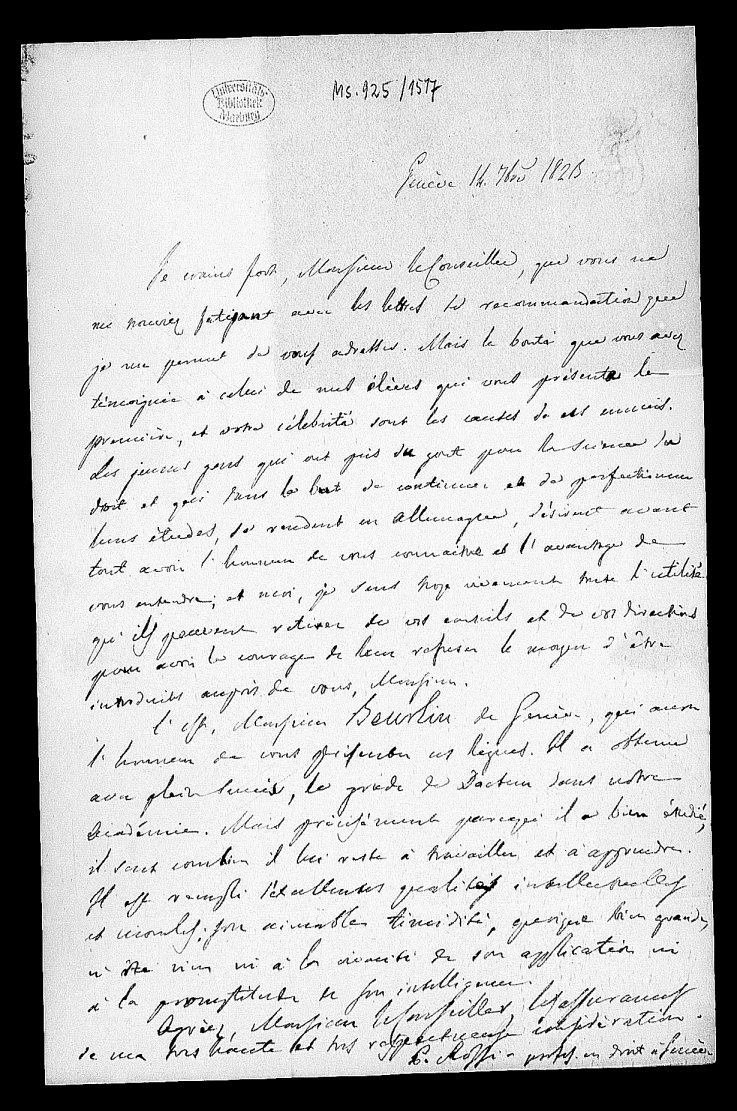 Universitäts
Bibliothek
Marburg
Ms. 925/1517
Genève 14. 7bre 182
Je crains fort, Monsieur le Conseiller, que vous ne
me trouviez fatigant avec les lettres de recommandation que
je me permet de vous adresser. Mais la bonté que vous avez
témoignée à celui de mes élèves qui vous présenta la
première, et votre célébrité sont les causes de ces ennuis.
Les jeunes gens qui ont pris du gout pour la Science du
droit et qui dans le but de continuer et de perfectionner
leurs études, se rendent en Allemagne, désirent avant
tout avoir l'honneur de vous connaitre et l'avantage de
vous entendre; et moi, je sens trop vivement toute l'utilité
qu'ils peuvent retirer de vos conseils et de vos directions
pour avoir le courage de leur refuser le moyen d'être
introduits auprès de vous, Monsieur.
C'est, Monsieur de Genève, qui aura
l'honneur de vous présenter ces lignes. Il a obtenu
avec plein succès, le grade de Docteur dans notre
Académie. Mais précisément parcequ'il a bien étudié,
il sent combien il lui reste à travailler et à apprendre.
Il est rempli d'excellentes qualités intellectuelles
et morales; son aimable timidité, quoique bien grande,
n'ôte rien ni à la vivacité de son application ni
à la promptitude de son intelligence.
Agréez, Monsieur le Conseiller, les assurances
de ma très haute et très respectueuse considération.
P. Rossi profes. en droit à Genève